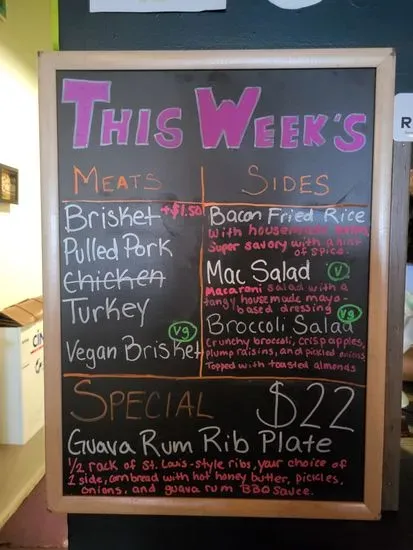 THIS WEEK'S
MEATS
Brisket +$1.50
Pulled Pork
Chicken
Turkey
Vegan Brisket vg
SIDES
Bacon Fried Rice
with housemade
Super savory with a hint
of spice.
Mac Salad v
Macaroni salad with a
tangy housemade mayo-
based dressing
Broccoli Salad vg
Crunchy broccoli, crisp apples,
plump raisins, and pickled onions
Topped with toasted almonds
SPECIAL $22
Guava Rum Rib Plate
1/2 rack of St. Louis-style ribs, your choice of
1 side, cornbread with hot honey butter, pickles,
onions, and guava rum BBQ sauce.
R